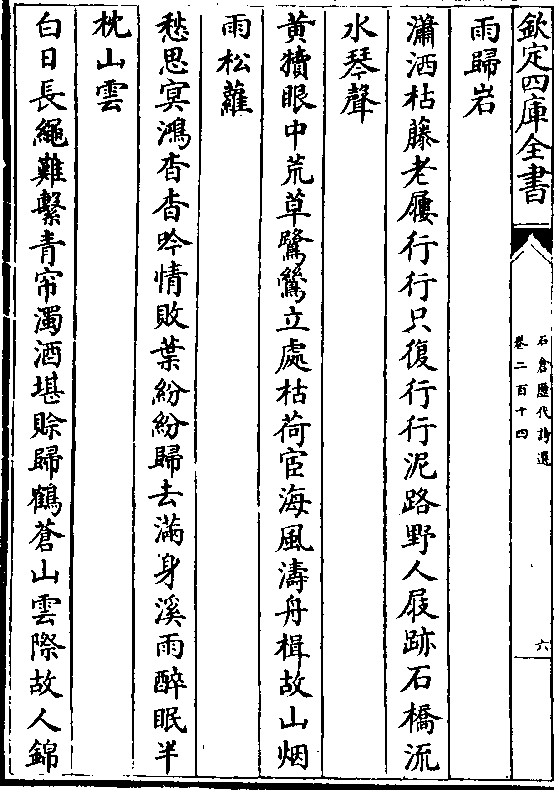 欽定四庫全書
石倉歷代詩選
卷二百十四
六
雨歸岩
瀟洒枯藤老屨行行只復行行泥路野人屐跡石橋流
水琴聲
黃犢眼中荒草鷺鷥立處枯荷宦海風濤舟楫故山烟
雨松蘿
愁思冥鴻杳杳吟情敗葉紛紛歸去滿身溪雨醉眠半
枕山雲
白日長繩難繫青帘濁酒堪賒歸鶴蒼山雲際故人錦